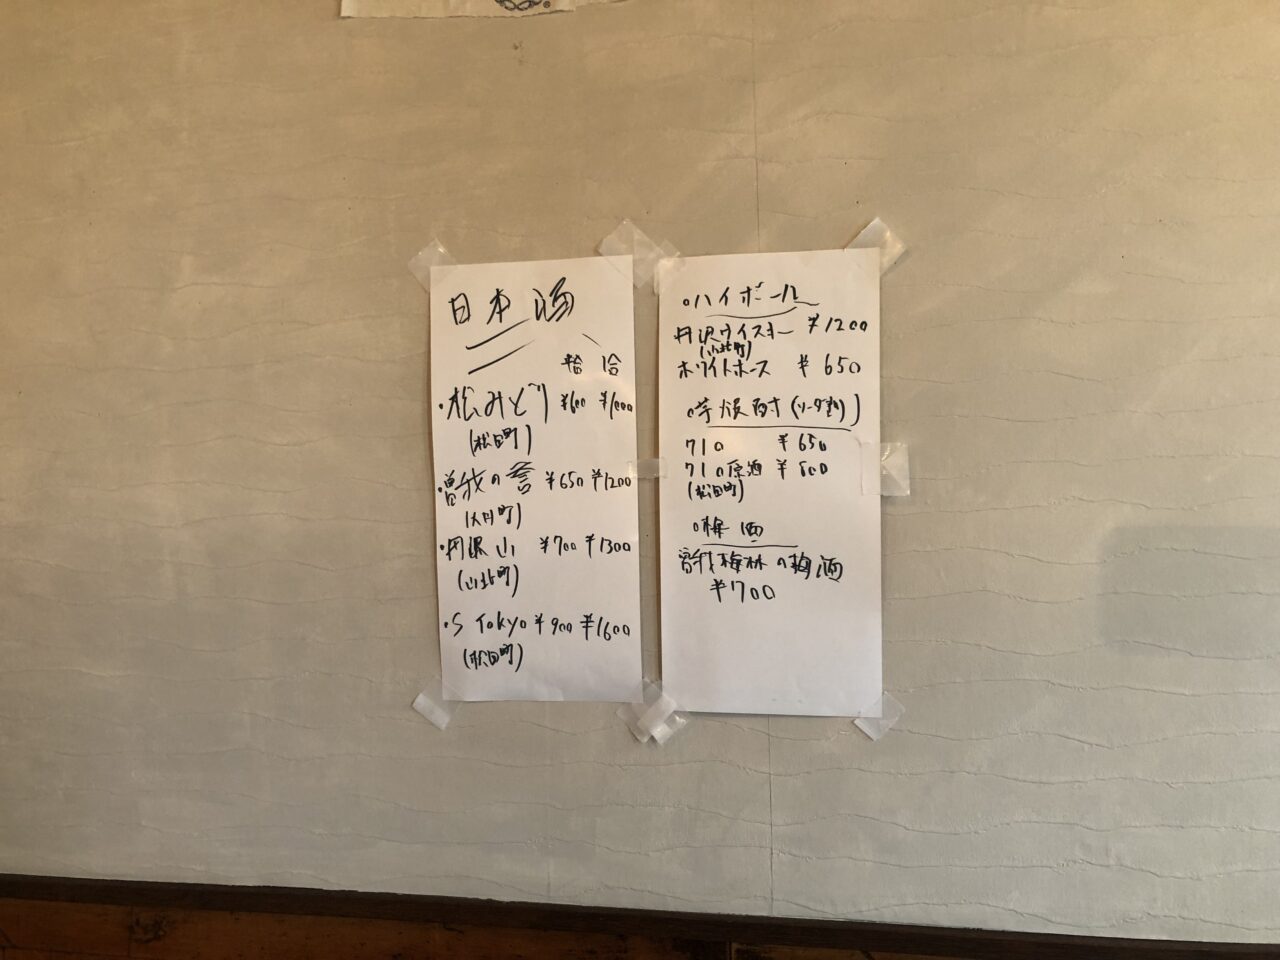 日本酒
松みどり ¥600 ¥1000
(松田町)
曽我の誉 ¥650 ¥1200
(大井町)
丹沢山 ¥700 ¥1300
(山北町)
S Tokyo ¥900 ¥1600
(松田町)
ハイボール
丹沢ウイスキー ¥1200
(山北町)
ホワイトホース ¥650
芋焼酎(ソーダ割)
710 ¥650
710原酒 ¥800
(松田町)
梅酒
曽我梅林の梅酒
¥700